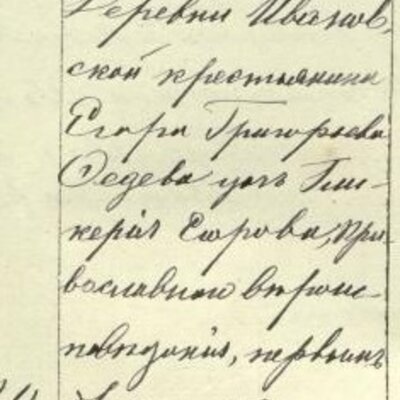 Деревни Иванов,
ской крестьянина
Егора Григорьева
Федева дочь Гли-
керія Егорова, Пра-
вославнаго вѣроис-
повѣданія, первымъ